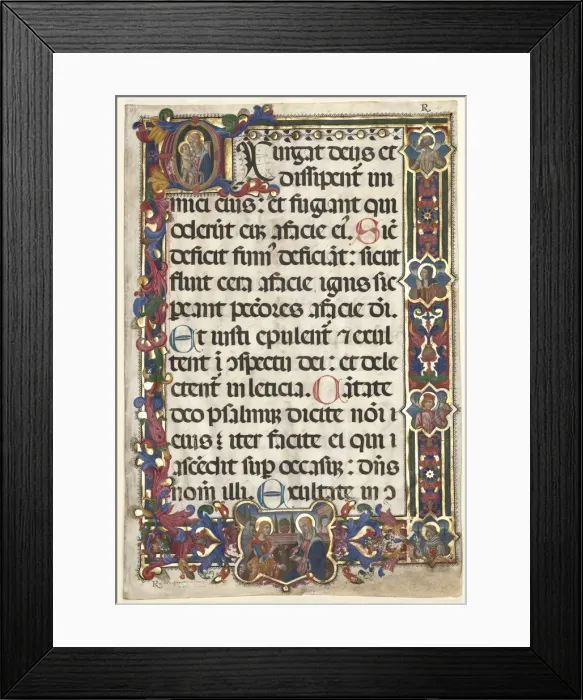 R.
EXurgat deus et
dissipent̄ ini
mici eius: et fugiant qui
oderūt eū afacie ei᷒. Sic̄
deficit fum᷒ deficiāt: sicut
fluit cera afacie ignis sic
pereant pec̄ores afacie dī.
Et iusti epulent̄ ⁊ exul
tent ī ↄspectu dei: et dele
ctent̄ in leticia. Cātate
deo psalmuꝫ dicite nōi i
eius: iter facite ei qui i
ascēdit sup̄ occasuꝫ: dn̄s
nom̄ illi. Exultate in ↄ
R.